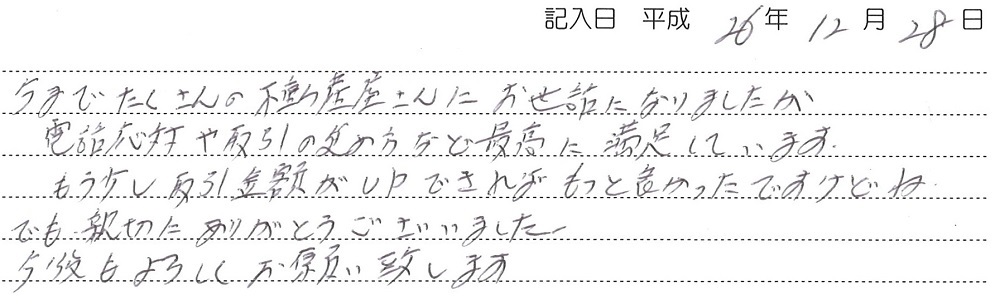 記入日 平成 26年 12月 28日
今までたくさんの不動産屋さんにお世話になりましたが
電話応対や取引の進め方など最高に満足しています.
もう少し取引金額がUPできればもっと良かったですけどね
でも親切にありがとうございました
今後もよろしくお願い致します